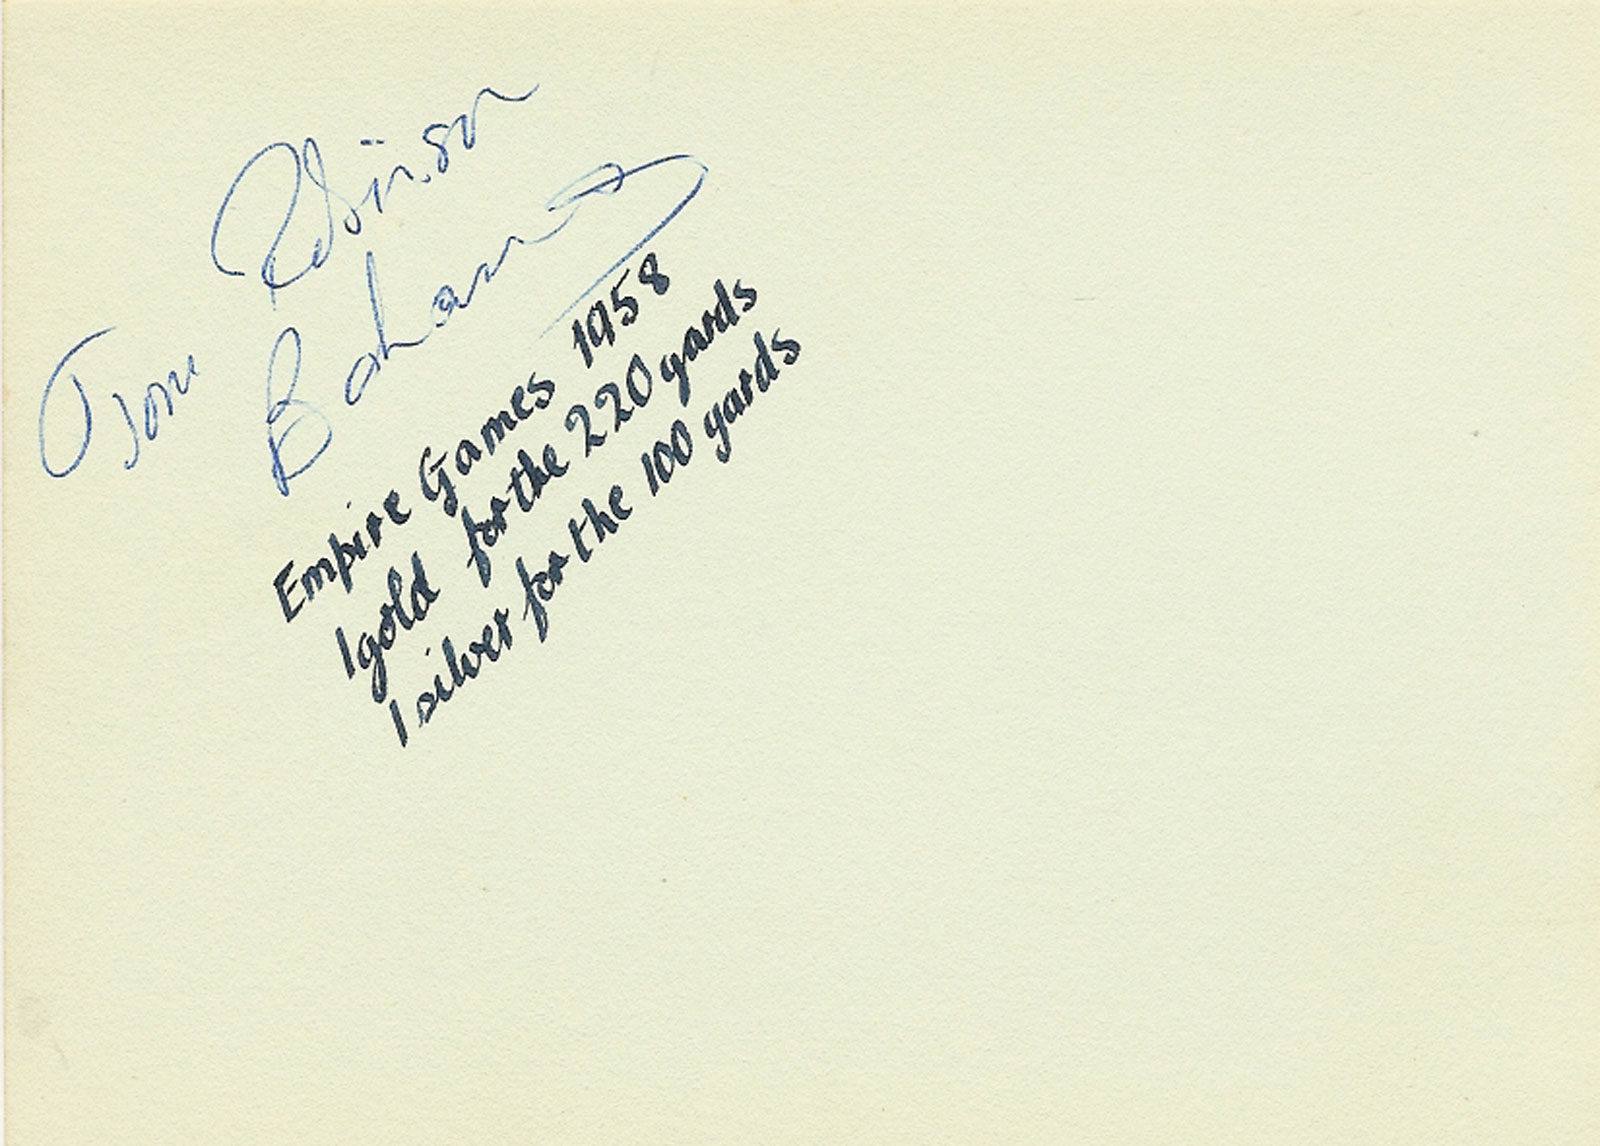 Tom Robinson
Bahamas
Empire Games 1958
1 gold for the 220 yards
1 silver for the 100 yards